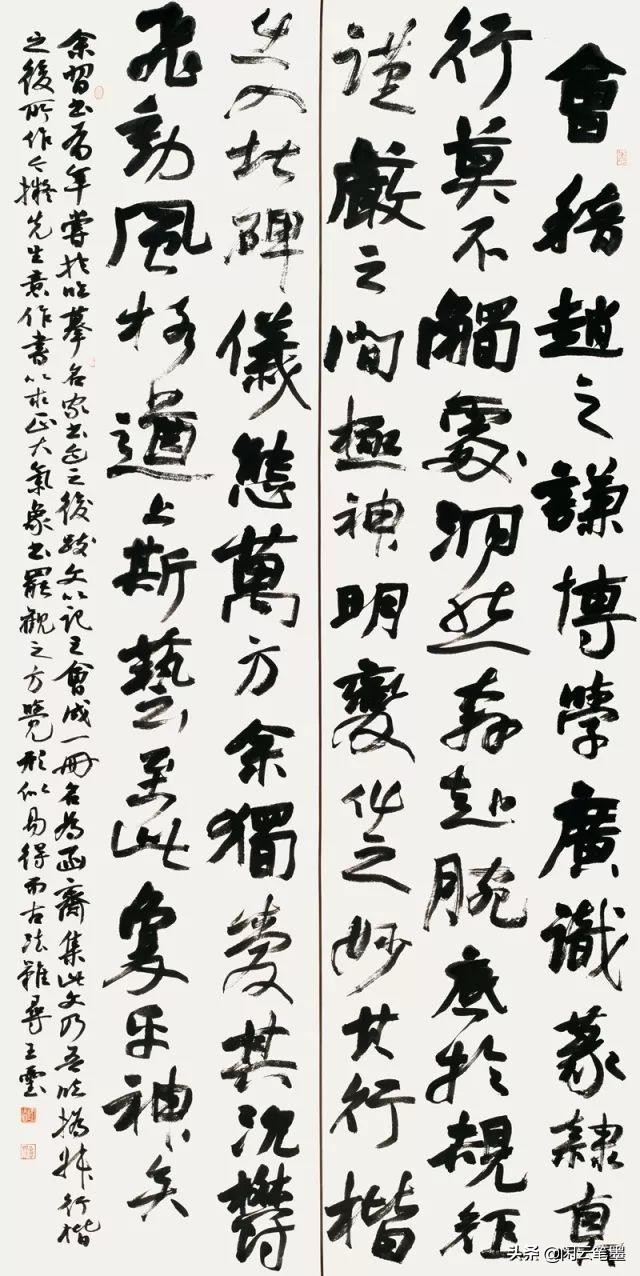 會稽趙之謙博學廣識篆隸真
行莫不觸處洞然奔赴腕底於規矩
謹嚴之間極神明變化之妙其行楷
出入北碑儀態萬方余獨愛其沉鬱
飛動風格遒上斯藝至此乎神矣
余習書有年嘗於臨摹名家書迹之後跋文以記之會成一冊名為齋集此文乃吾臨撝叔行楷
之後所作今擬先生意作書以求正大氣象書罷觀之方覺形似易得而古法難尋王雲
头条 @闲云笔墨